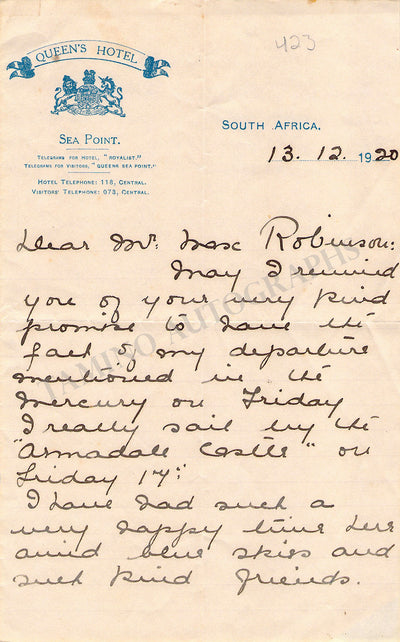 423
QUEEN'S HOTEL
SEA POINT.
TELEGRAMS FOR HOTEL, "ROYALIST."
TELEGRAMS FOR VISITORS, "QUEENS SEA POINT."
HOTEL TELEPHONE: 118, CENTRAL.
VISITORS' TELEPHONE: 673, CENTRAL.
SOUTH AFRICA.
13.12.1920
Dear Mr. Max Robinson:
May I remind
you of your very kind
promise to have the
fact of my departure
mentioned in the
Mercury on Friday
I really sail by the
"Armadale Castle" on
Friday 17th
I have had such a
very happy time here
amid blue skies and
such kind friends.
TAMINO AUTOGRAPHS